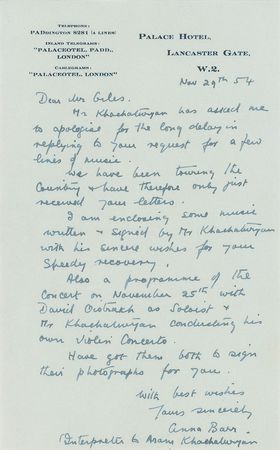 TELEPHONE:
PADDINGTON 8281 (4 LINES)
INLAND TELEGRAMS:
"PALACEOTEL, PADD., LONDON"
CABLEGRAMS:
"PALACEOTEL, LONDON"
PALACE HOTEL,
LANCASTER GATE,
W.2.
Nov 29th 54
Dear Mr Giles.
Mr Khachaturyan has asked me
to apologise for the long delay in
replying to your request for a few
lines of music.
We have been touring the
Country & have therefore only just
received your letters.
I am enclosing some music
written & signed by Mr Khachaturyan
with his sincere wishes for your
Speedy recovery.
Also a programme of the
Concert on November 25th with
David Oistrakh as Soloist &
Mr Khachaturyan conducting his
own Violin Concerto.
Have got them both to sign
their photographs for you.
With best wishes
Yours sincerely
Anna Barr.
(Interpreter to Aram Khachaturyan